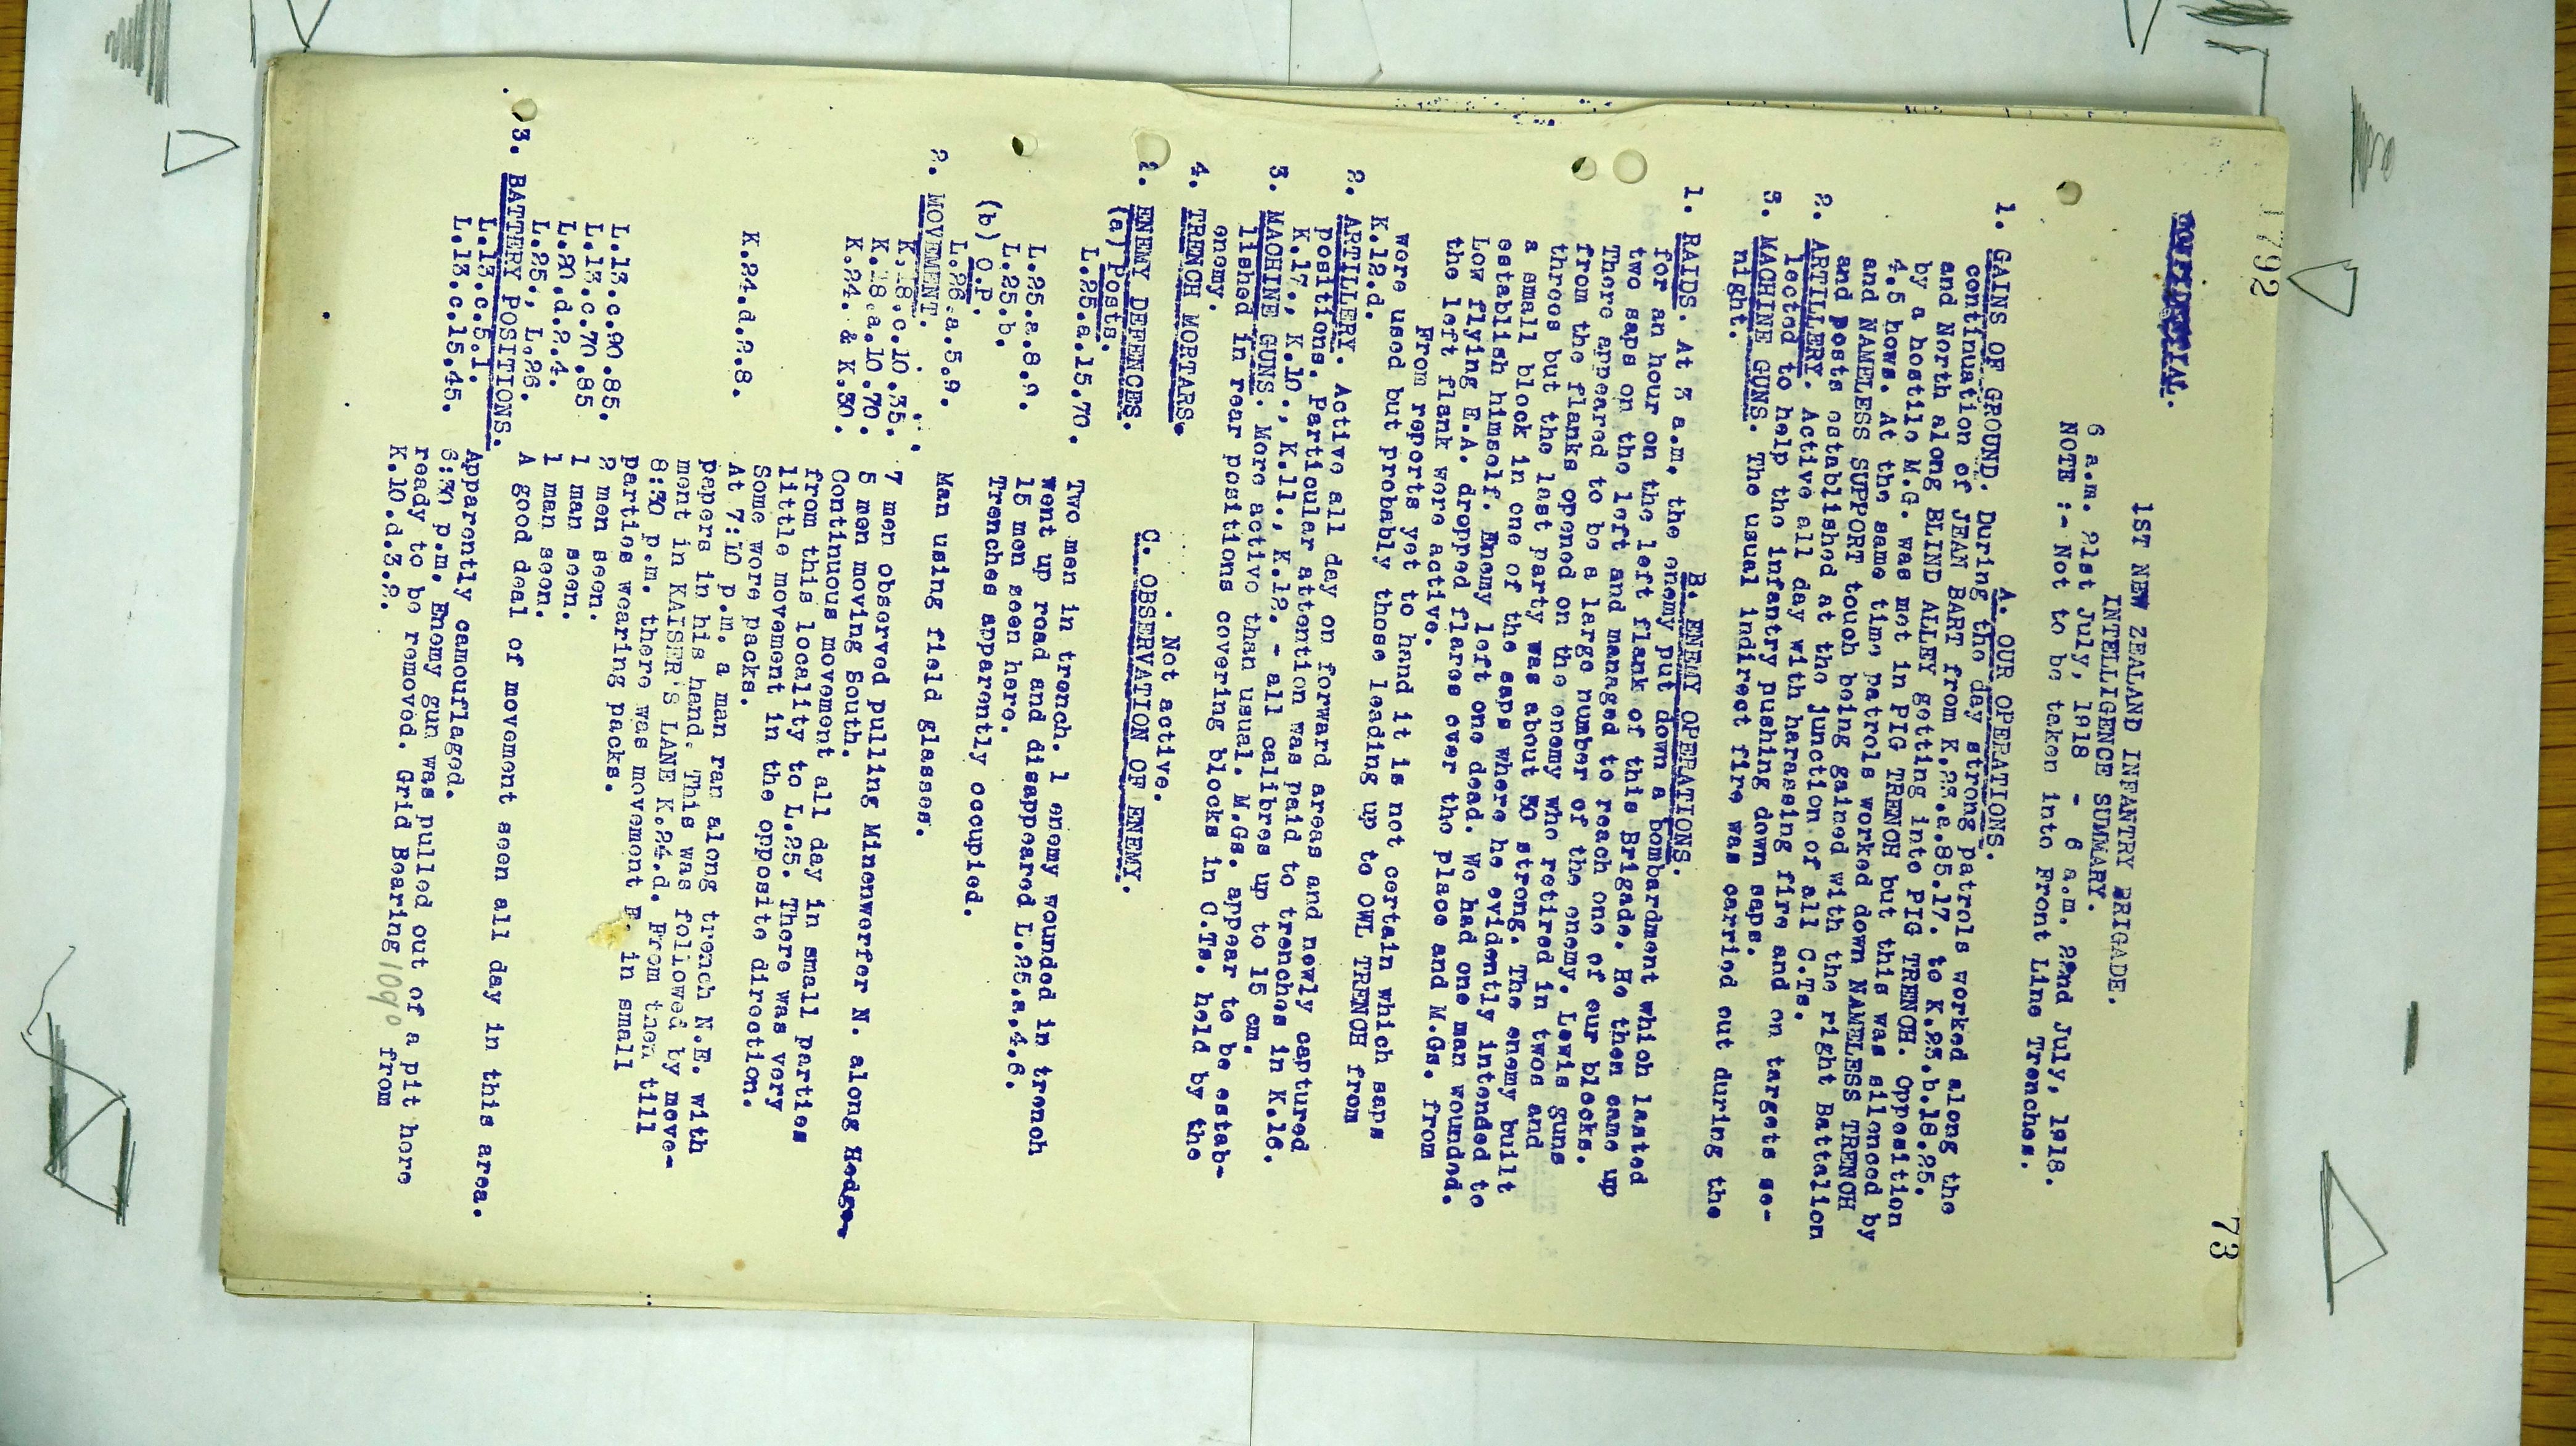 1792
73
CONFIDENTIAL.
1ST NEW ZEALAND INFANTRY BRIGADE.
INTELLIGENCE SUMMARY.
6 a.m. 21st July, 1918 - 6 a.m. 22nd July, 1918.
NOTE :- Not to be taken into Front Line Trenches.
A. OUR OPERATIONS.
1. GAINS OF GROUND. During the day strong patrols worked along the
continuation of JEAN BART from K.23.a.85.17. to K.23.b.18.25.
and North along BLIND ALLEY getting into PIG TRENCH. Opposition
by a hostile M.G. was met in PIG TRENCH but this was silenced by
4.5 hows. At the same time patrols worked down NAMELESS TRENCH
and NAMELESS SUPPORT touch being gained with the right Battalion
and posts established at the junction of all C.Ts.
2. ARTILLERY. Active all day with harassing fire and on targets se-
lected to help the infantry pushing down saps.
3. MACHINE GUNS. The usual indirect fire was carried out during the
night.
B. ENEMY OPERATIONS.
1. RAIDS. At 3 a.m. the enemy put down a bombardment which lasted
for an hour on the left flank of this Brigade. He then came up
two saps on the left and managed to reach one of our blocks.
There appeared to be a large number of the enemy. Lewis guns
from the flanks opened on the enemy who retired in twos and
threes but the last party was about 30 strong. The enemy built
a small block in one of the saps where he evidently intended to
establish himself. Enemy left one dead. We had one man wounded.
Low flying E.A. dropped flares over the place and M.Gs. from
the left flank were active.
From reports yet to hand it is not certain which saps
were used but probably those leading up to OWL TRENCH from
K.12.d.
2. ARTILLERY. Active all day on forward areas and newly captured
positions. Particular attention was paid to trenches in K.16.
K.17., K.10., K.11., K.12. - all calibres up to 15 cm.
3. MACHINE GUNS. More active than usual. M.Gs. appear to be estab-
lished in rear positions covering blocks in C.Ts. held by the
enemy.
4. TRENCH MORTARS. Not active.
C. OBSERVATION OF ENEMY.
1. ENEMY DEFENCES.
(a) Posts.
L.25.a.15.70. Two men in trench. 1 enemy wounded in trench
went up road and disappeared L.25.a.4.6.
L.25.a.8.9. 15 men seen here.
L.25.b. Trenches apparently occupied.
(b) O.P.
L.26.a.5.9. Man using field glasses.
2. MOVEMENT.
K.18.c.10.35. 7 men observed pulling Minenwerfer N. along Hedge
K.18.a.10.70. 5 men moving South.
K.24. & K.30. Continuous movement all day in small parties
from this locality to L.25. There was very
little movement in the opposite direction.
Some wore packs.
K.24.d.2.8. At 7:10 p.m. a man ran along trench N.E. with
papers in his hand. This was followed by move-
ment in KAISER'S LANE K.24.d. From then till
8:30 p.m. there was movement E. in small
parties wearing packs.
L.13.c.90.85. 2 men seen.
L.13.c.70.85 1 man seen.
L.20.d.2.4. 1 man seen.
L.25., L.26. A good deal of movement seen all day in this area.
3. BATTERY POSITIONS.
L.13.c.5.1. Apparently camouflaged.
L.13.c.15.45. 6:30 p.m. Enemy gun was pulled out of a pit here
ready to be removed. Grid Bearing 109° from
K.10.d.3.2.